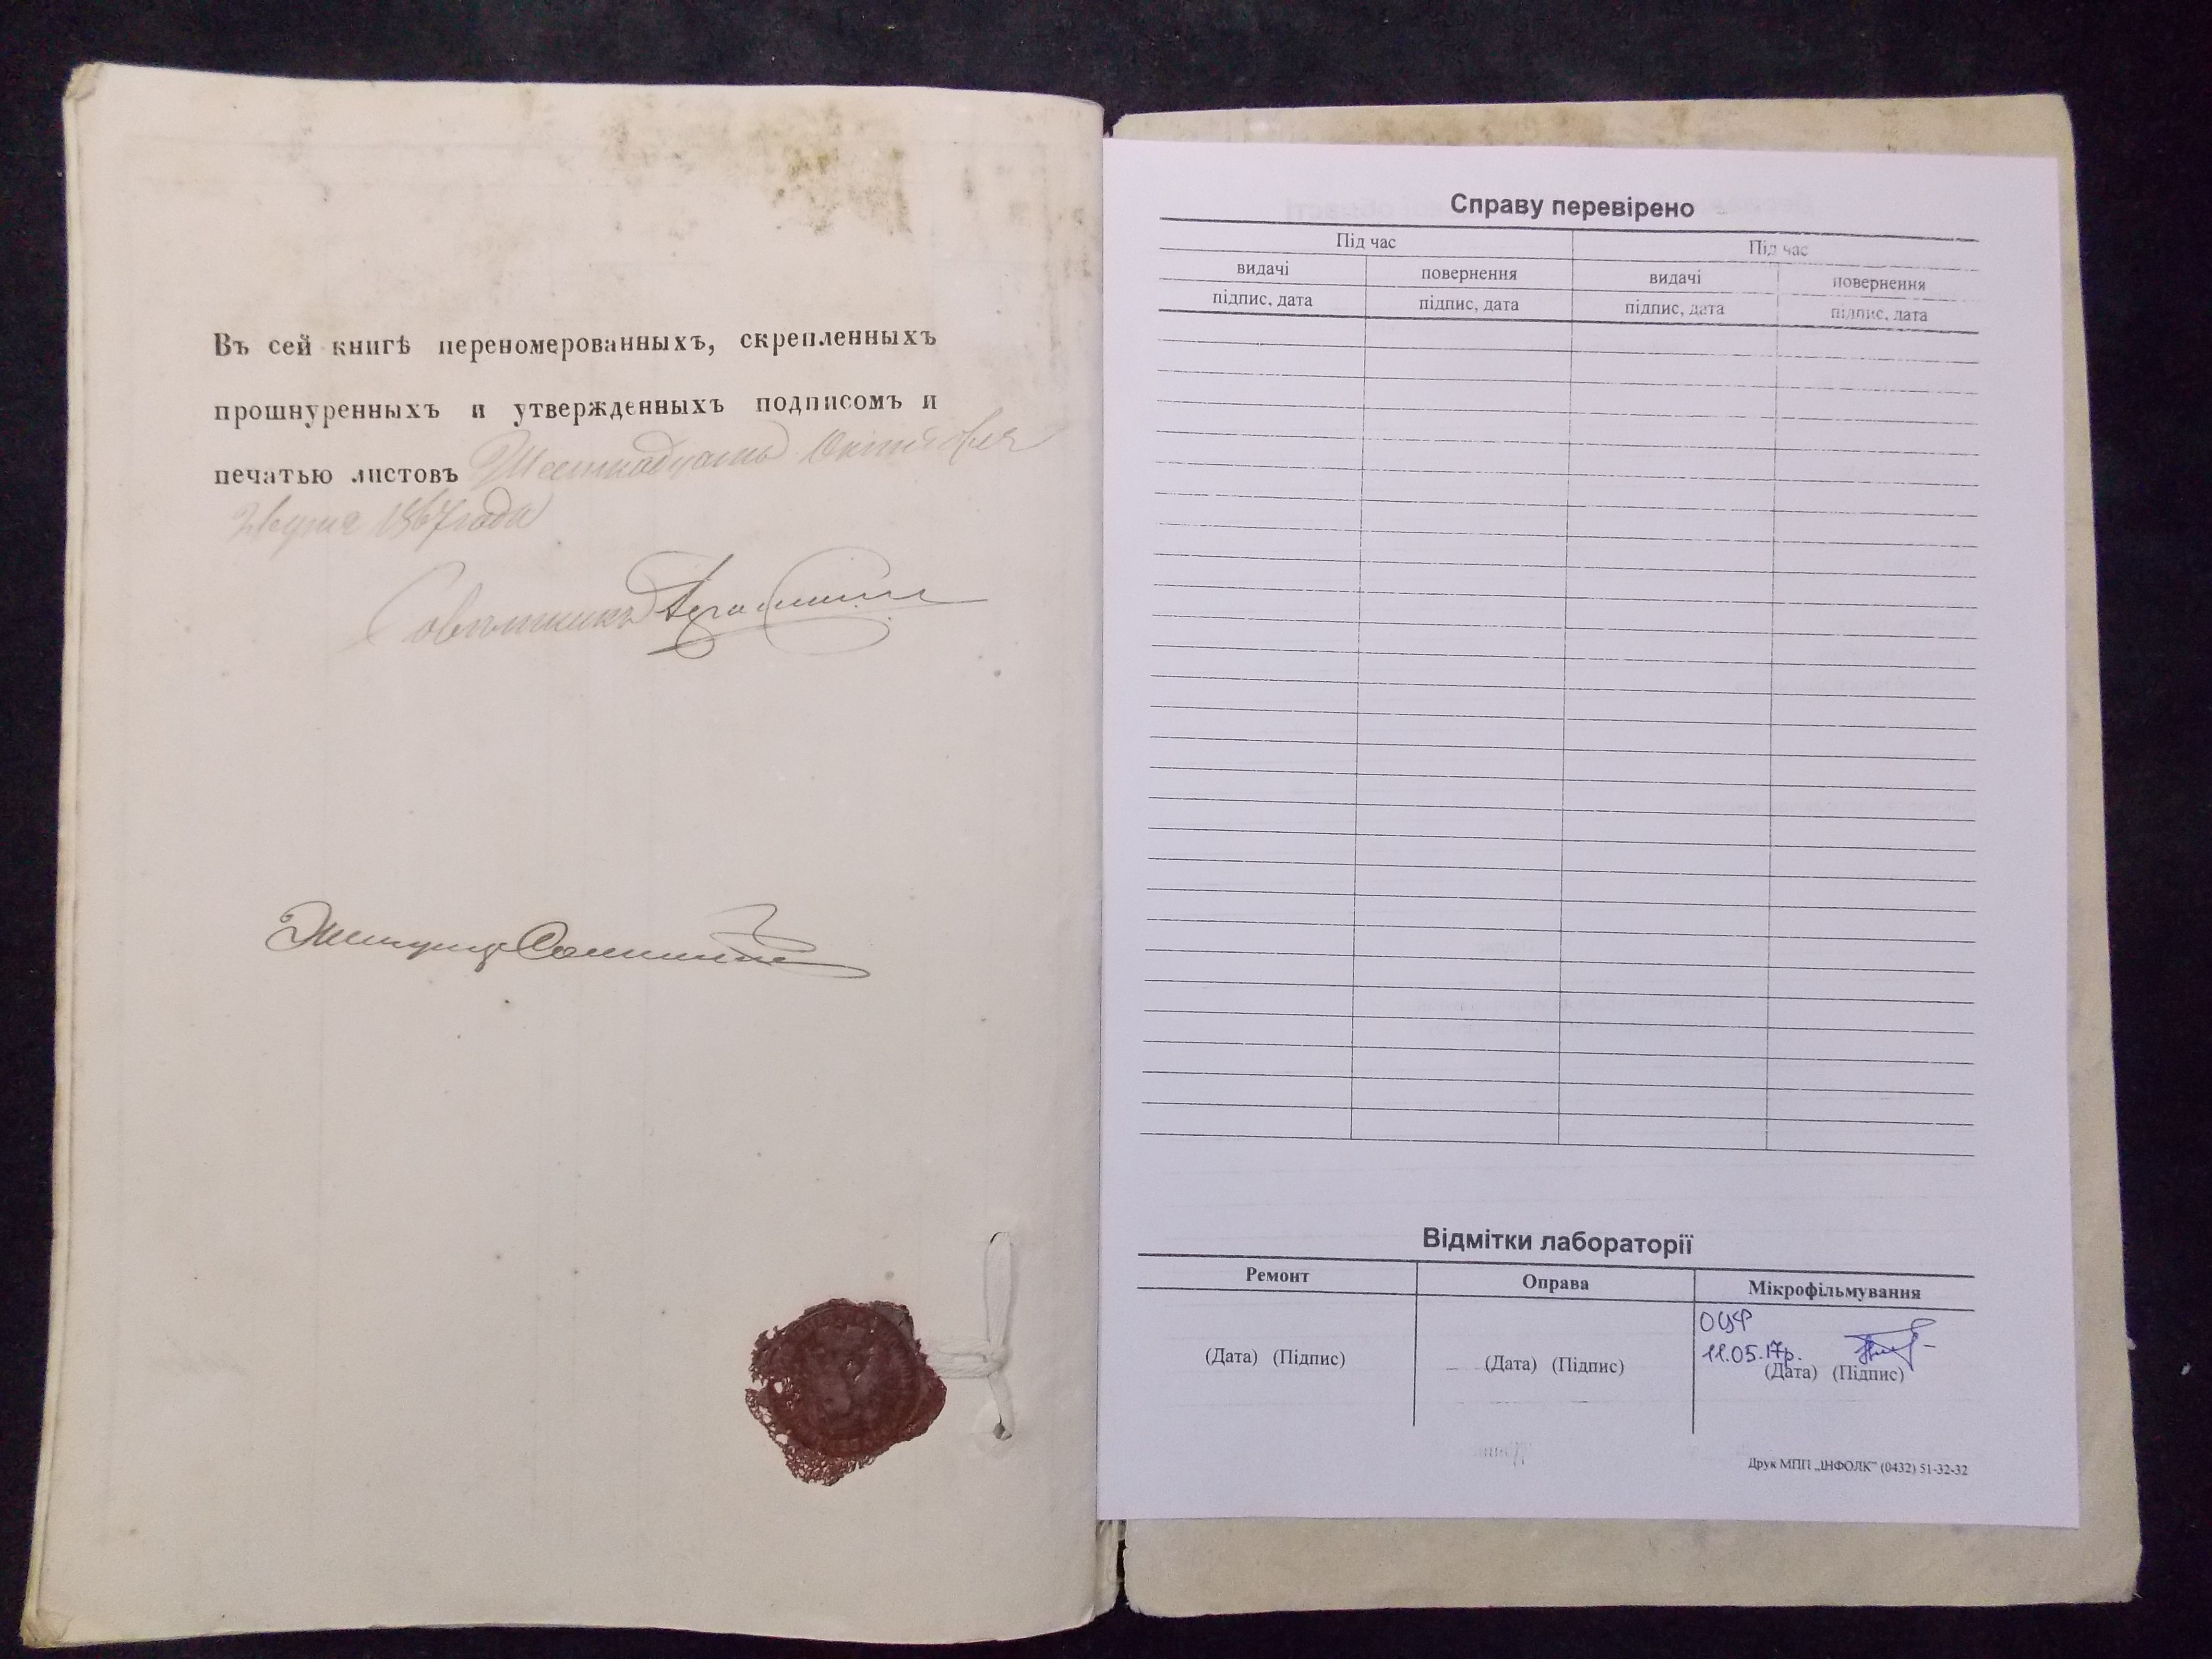 Въ сей книгѣ переномерованныхъ, скрепленныхъ
прошнуренныхъ и утвержденныхъ подписомъ и
печатью листовъ Шестнадцать Октября
1867 года
Совѣтникъ
Справу перевірено
Під час Під час
видачі повернення видачі повернення
підпис, дата підпис, дата підпис, дата підпис, дата
Відмітки лабораторії
Ремонт Оправа Мікрофільмування
ОЦФ
11.05.17р.
(Дата) (Підпис) (Дата) (Підпис) (Дата) (Підпис)
Друк МПП „ІНФОЛК” (0432) 51-32-32